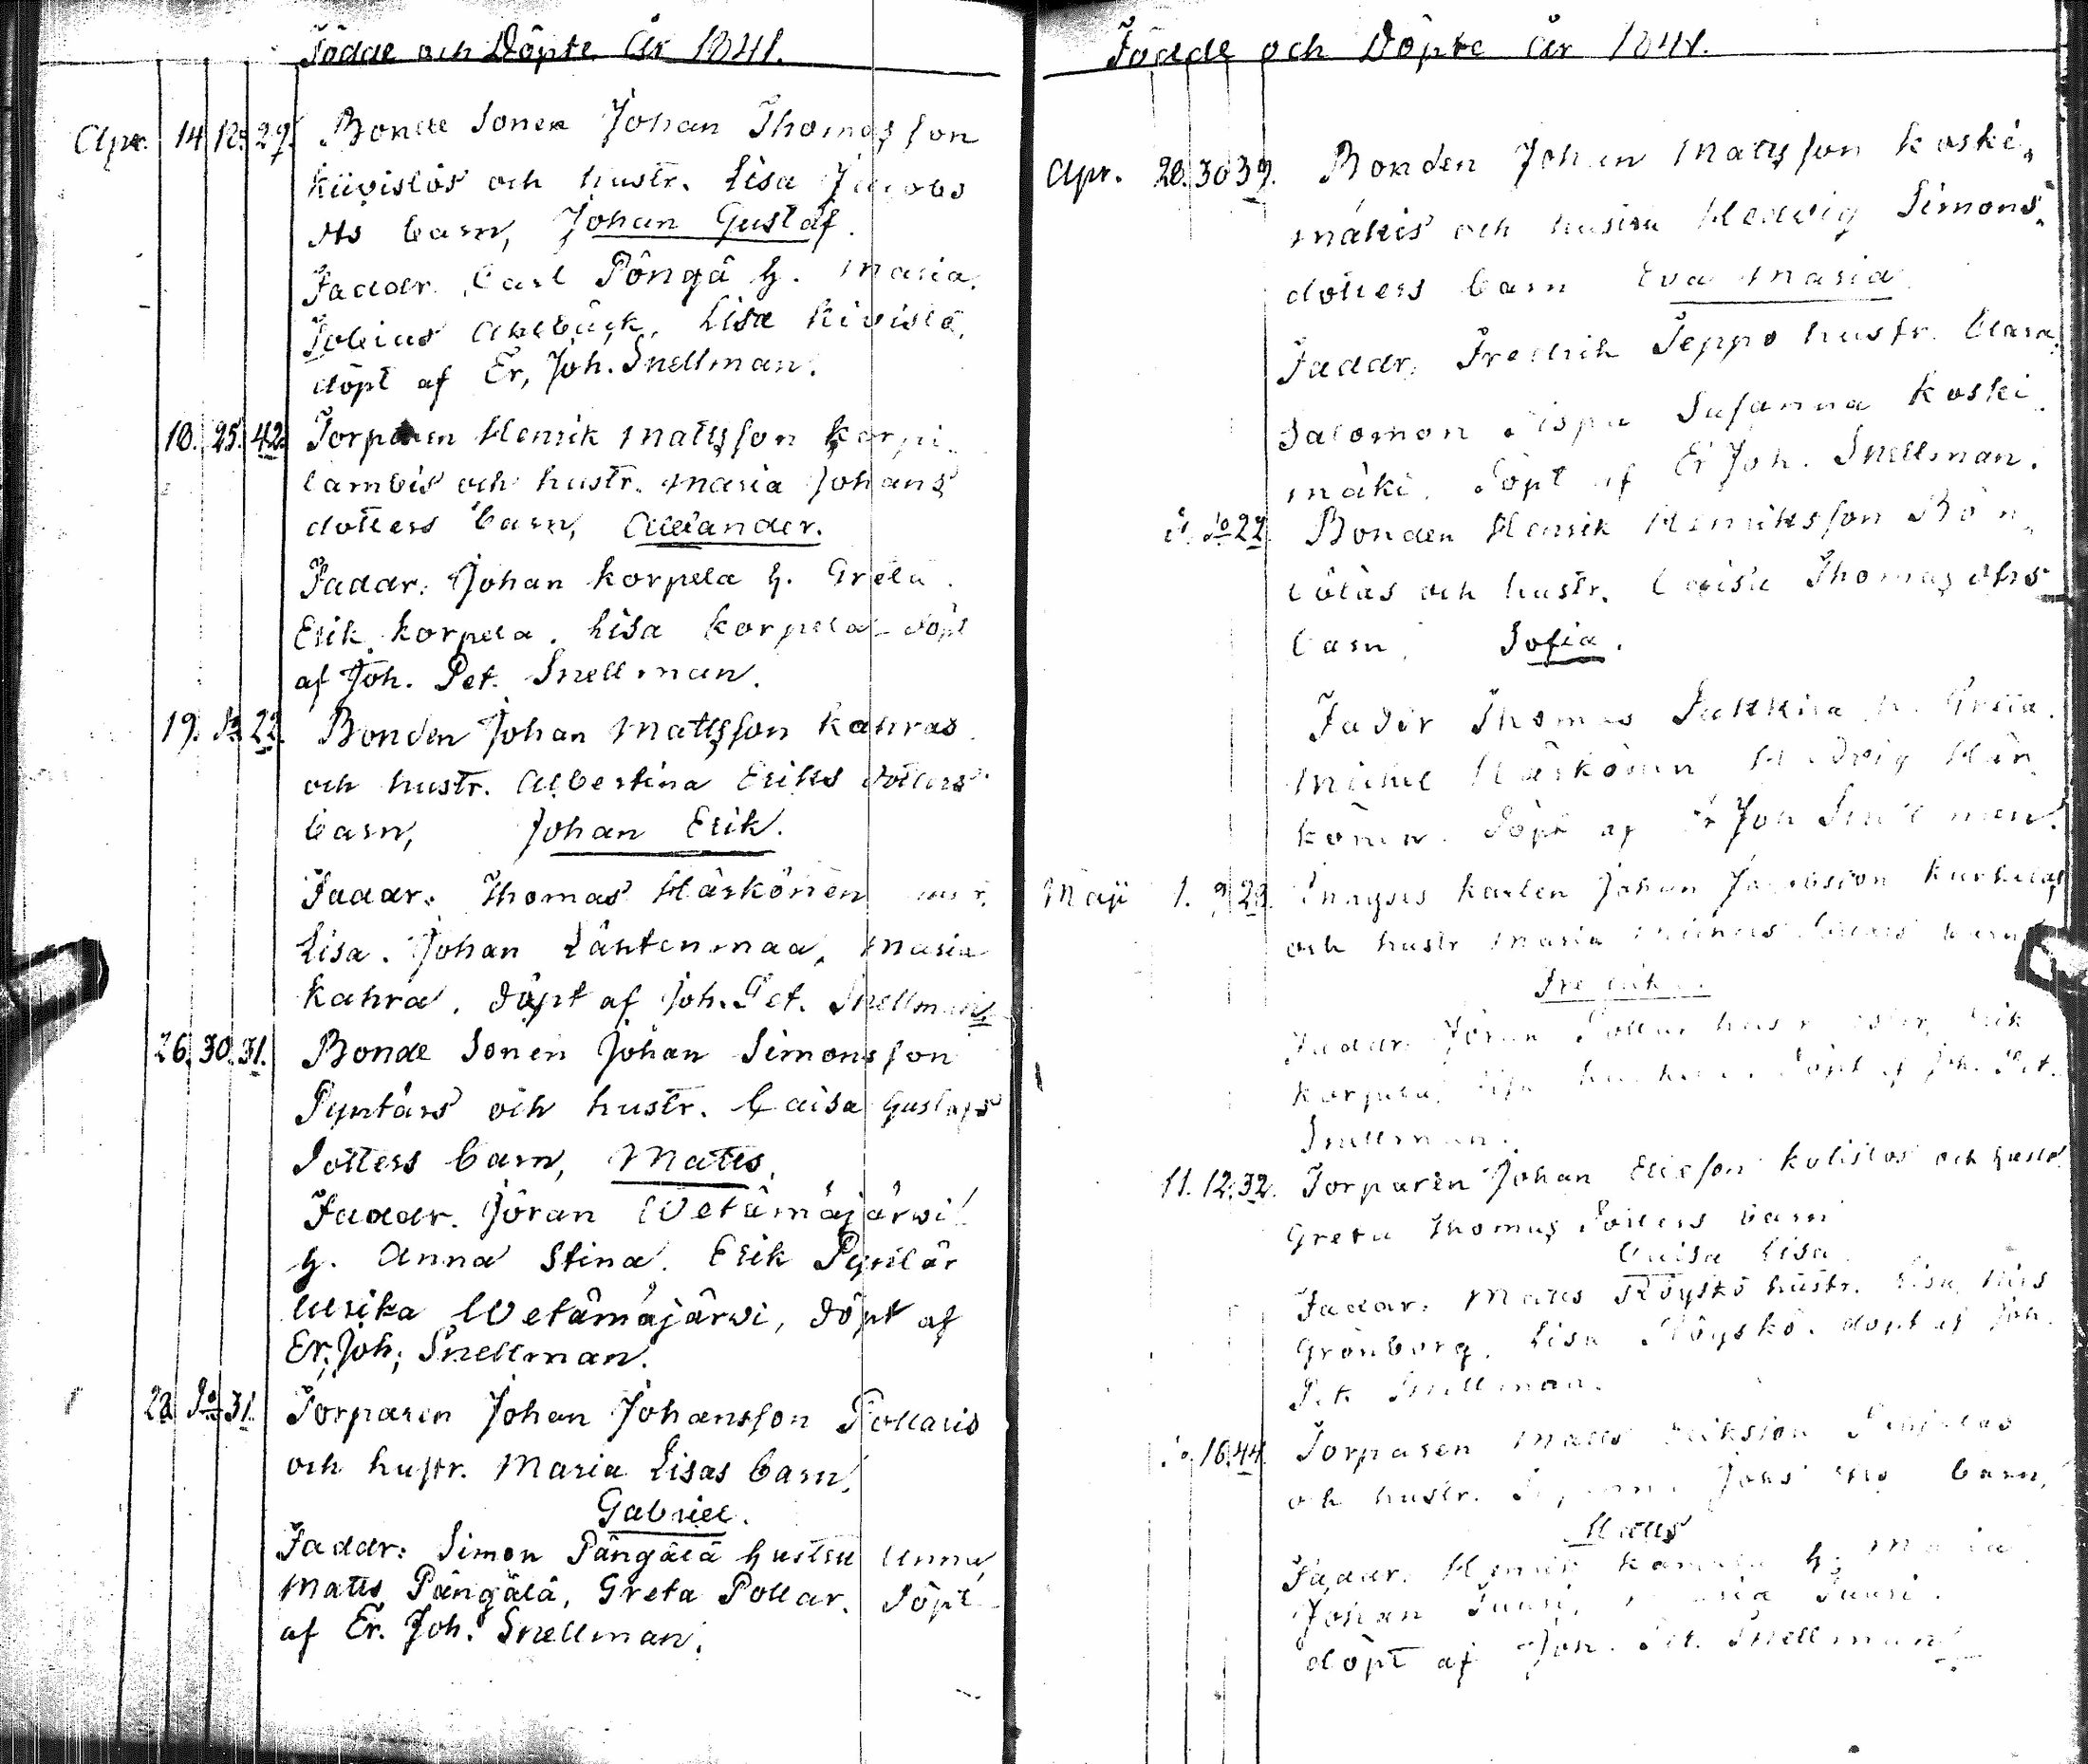 Födde och Döpte År 1841.
Apr. 14. 18. 29. Bonde Sonen Johan Thomasson
Kiivistös och hustr. Lisa Jacobs
dts barn, Johan Gustaf.
Faddr. Carl Pöngä h. Maria.
Tobias Ahlbäck, Lisa Kivistö,
döpt af Er. Joh. Snellman.
18. 25. 42. Torparen Henrik Mattsson Karpi-
lambis och hustr. Maria Johans
dotters barn, Allexander.
Faddr: Johan Korpela h. Greta.
Erik Korpela. Lisa Korpela döpt
af Joh. Pet. Snellman.
19. Do 22. Bonden Johan Mattsson Kahras
och hustr. Albertina Eriks dotters
barn, Johan Erik.
Faddr: Thomas Härkönen
Lisa. Johan Lähtenmaa, Maria
Kahra. döpt af Joh. Pet. Snellman
26. 30. 31. Bonde Sonen Johan Simonsson
Pyntärs och hustr. Caisa Gustafs
dotters barn, Matts.
Faddr. Jöran Wetämäjärwi
h. Anna Stina. Erik Pyntär
Ulrika Wetämäjärwi, döpt af
Er. Joh. Snellman.
28. Do 31. Torparen Johan Johansson Pollaris
och hustr. Maria Lisas barn,
Gabriel.
Faddr: Simon Pängälä hustru Anna,
Matts Pängälä, Greta Pollar. döpt
af Er. Joh. Snellman.
Födde och Döpte År 1841.
Apr. 28. 30 39. Bonden Johan Mattsson Koski-
mäkis och hustru Hedvig Simons-
dotters barn Eva Maria
Faddr. Fredrik Seppo hustr. Clara,
Salomon Susanna Koski
mäki. Döpt af Er Joh. Snellman.
Do 22. Bonden Henrik Henriksson Bön-
löläs och hustr. Caisa Thomas dtrs
barn, Sofia.
Faddr Thomas h. Greta.
Michel Härkönen Hedvig Här
könen. Döpt af Er Joh Snellman.
Maji 1. 9. 28. Inhyses karlen Johan Jacobsson
och hustr Maria barn
Faddr. Jöran hustr Erik
Korpela, Döpt af Joh. Pet.
Snellman.
11. 12. 32. Torparen Johan Ericson Kulistos och hustr
Greta Thomas dotters barn
Caisa Lisa.
Faddr. Matts Röyskö hustr. Lisa, Nils
Grönborg. Lisa Röyskö. döpt af Joh.
Pet. Snellman.
16. 44. Torparen Matts Eriksson
och hustr. barn,
Matts
Faddr. Henrik h. Maria
Johan Juusi, Maria Juusi.
döpt af Joh. Pet. Snellman